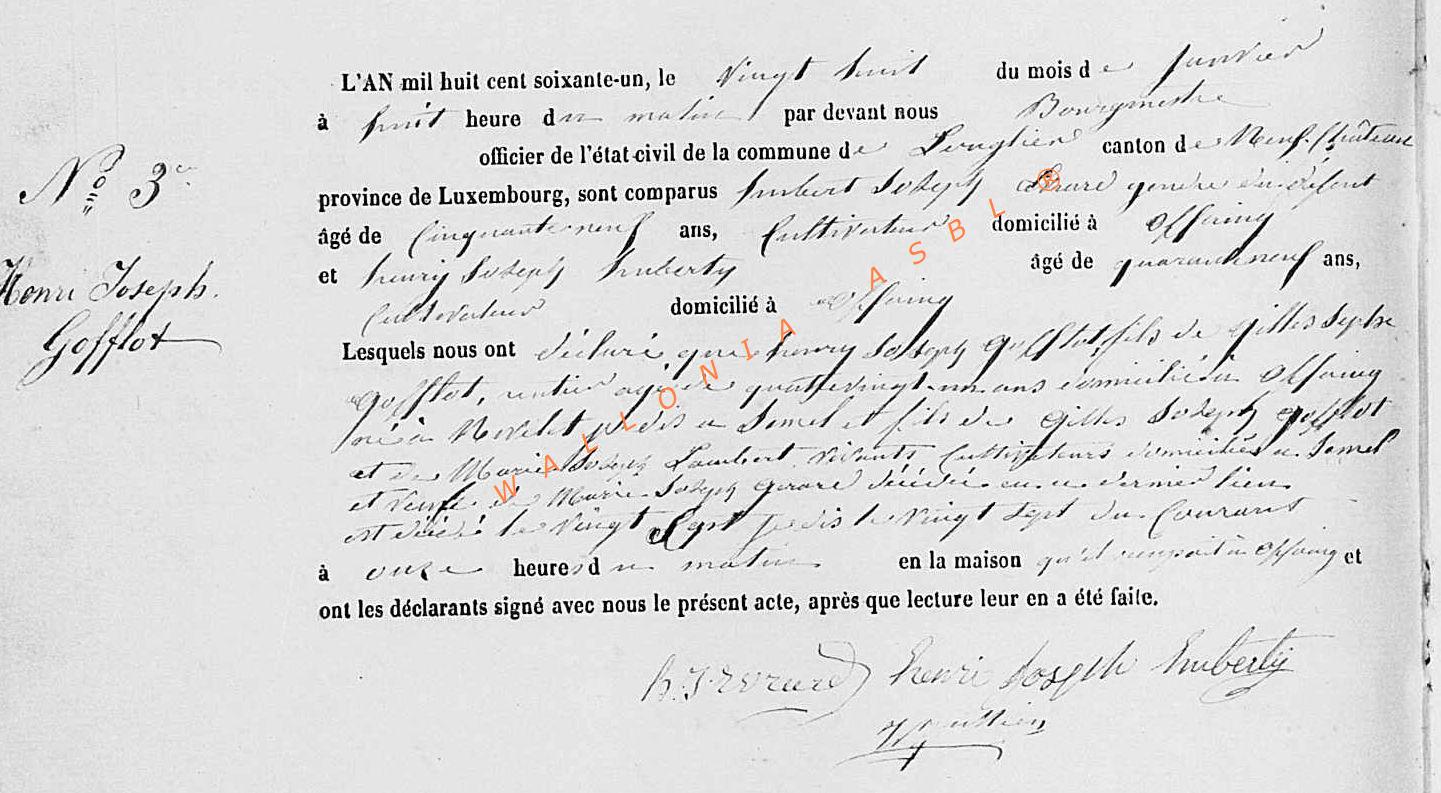 L'AN mil huit cent soixante-un, le vingt huit du mois de janvier
à huit heure du matin par devant nous Bourgmestre
officier de l'état-civil de la commune de Longlier canton de Neufchâteau
N° 3
province de Luxembourg, sont comparus Imbert Joseph gendre du défunt
âgé de Cinquante neuf ans, Cultivateur domicilié à Offaing
et henry Joseph huberty âgé de quarante neuf ans,
Henri Joseph.
Cultivateur domicilié à Offaing
Gofflot
Lesquels nous ont déclaré que henry Joseph Gofflot, fils de Gilles
Gofflot, rentier agé de quatre vingt un ans domicilié à Offaing
né à je dis a Semel et fils de Gilles Joseph Gofflot
et de Marie Joseph Lambert vivants Cultivateurs domiciliés a Semel
et veuf de Marie Joseph Gerard décédée en ce dernier lieu
est décédé le vingt Sept je dis le vingt Sept du Courant
à onze heures du matin en la maison qu'il occupait à Offaing et
ont les déclarants signé avec nous le présent acte, après que lecture leur en a été faite.
h. J. Evrard henri Joseph huberty
WALLONIA ASBL ®